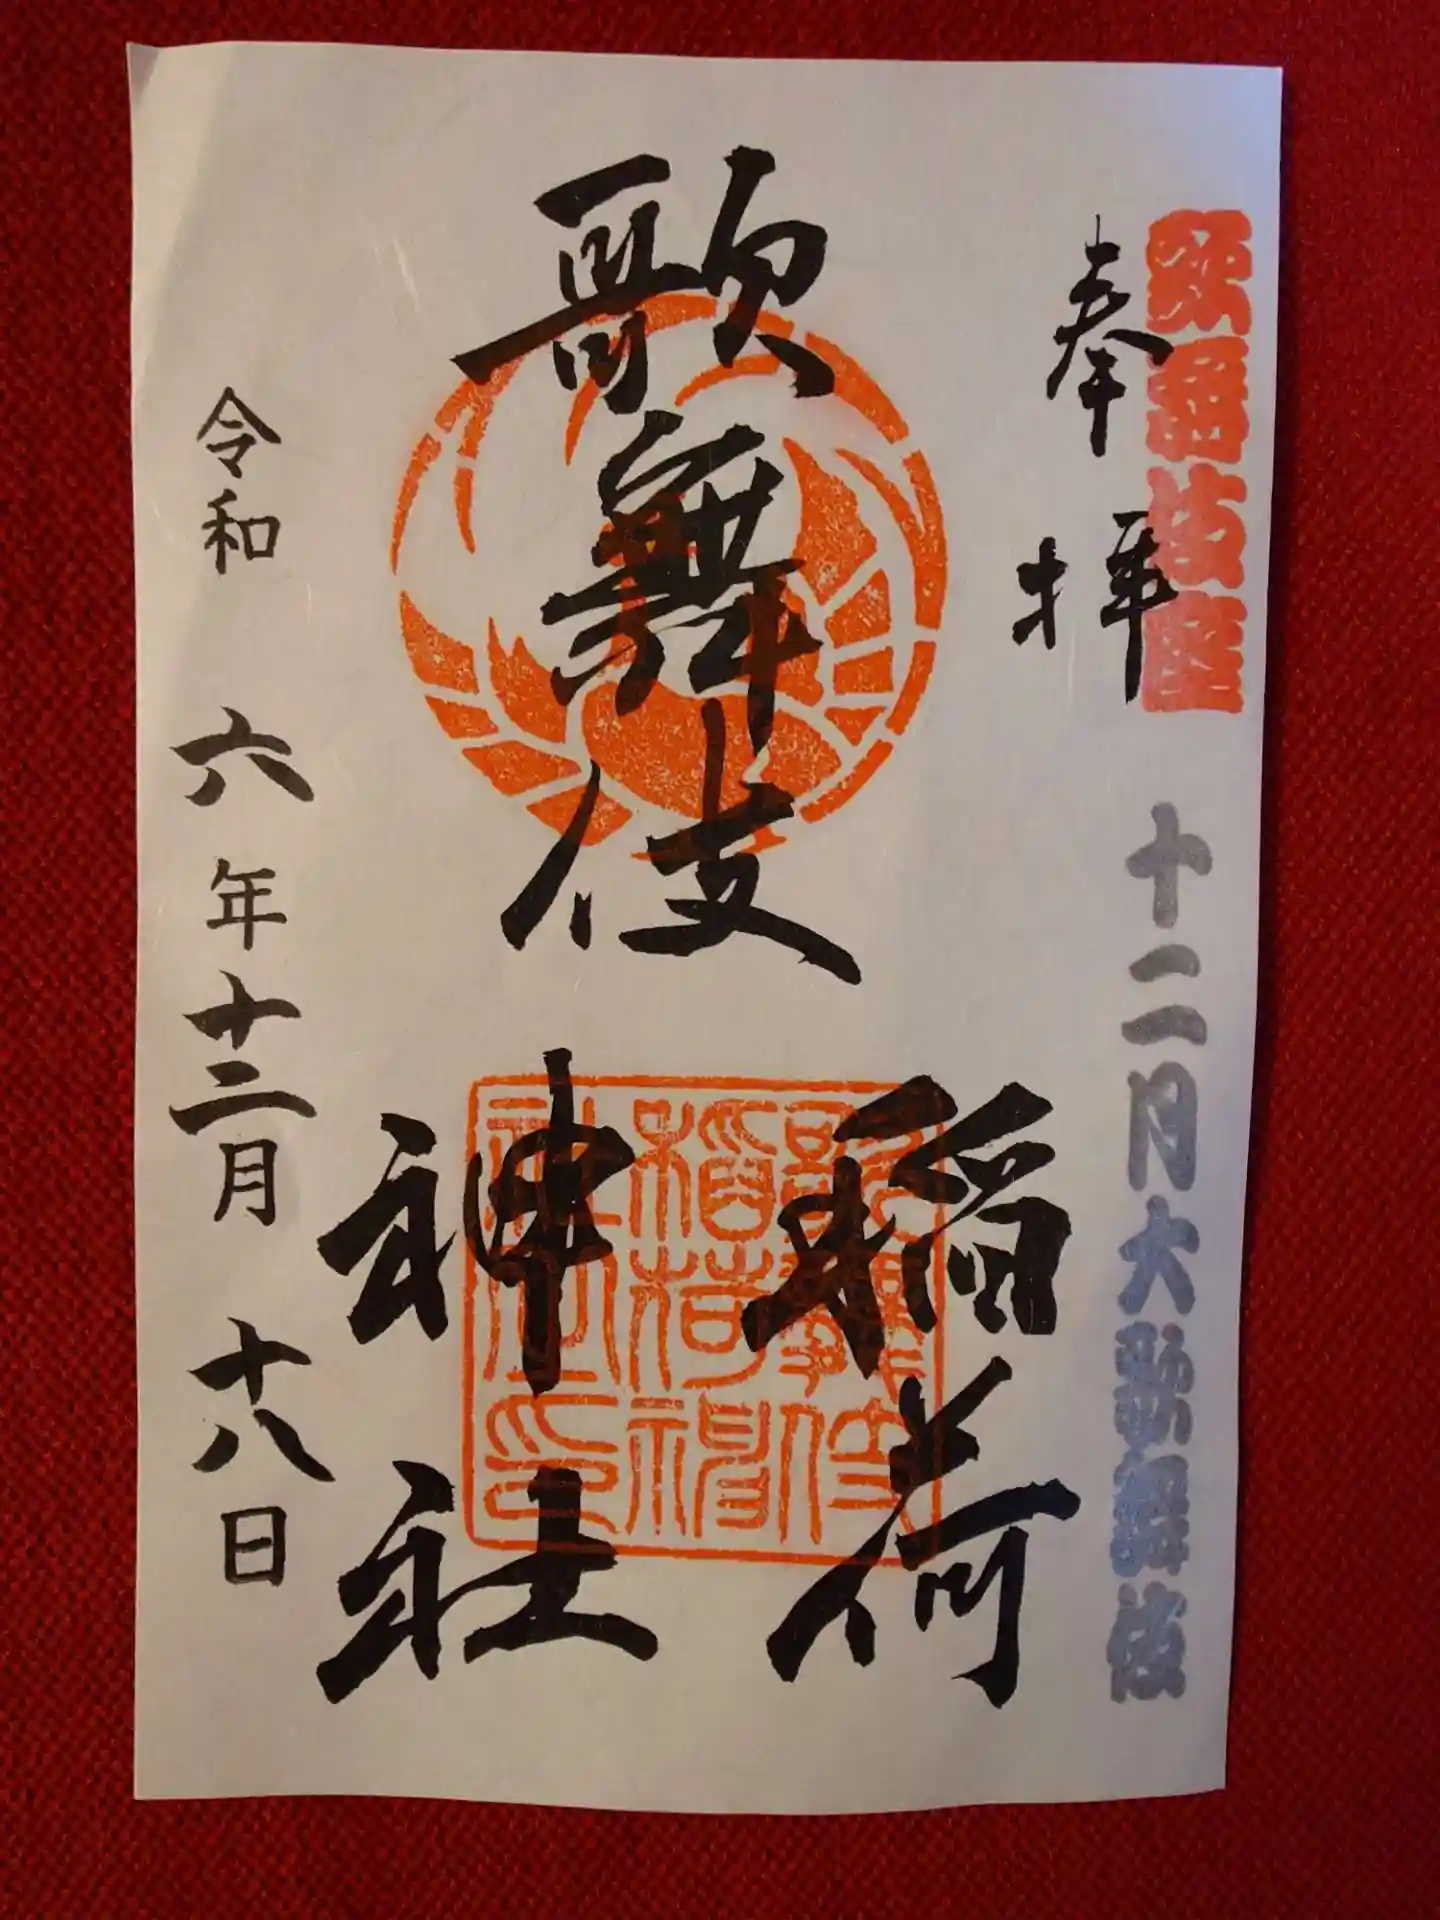 歌舞伎座
奉拝
十二月大歌舞伎
歌舞伎
稲荷
神社
歌舞伎
稲荷神
社之印
令和六年十二月十八日